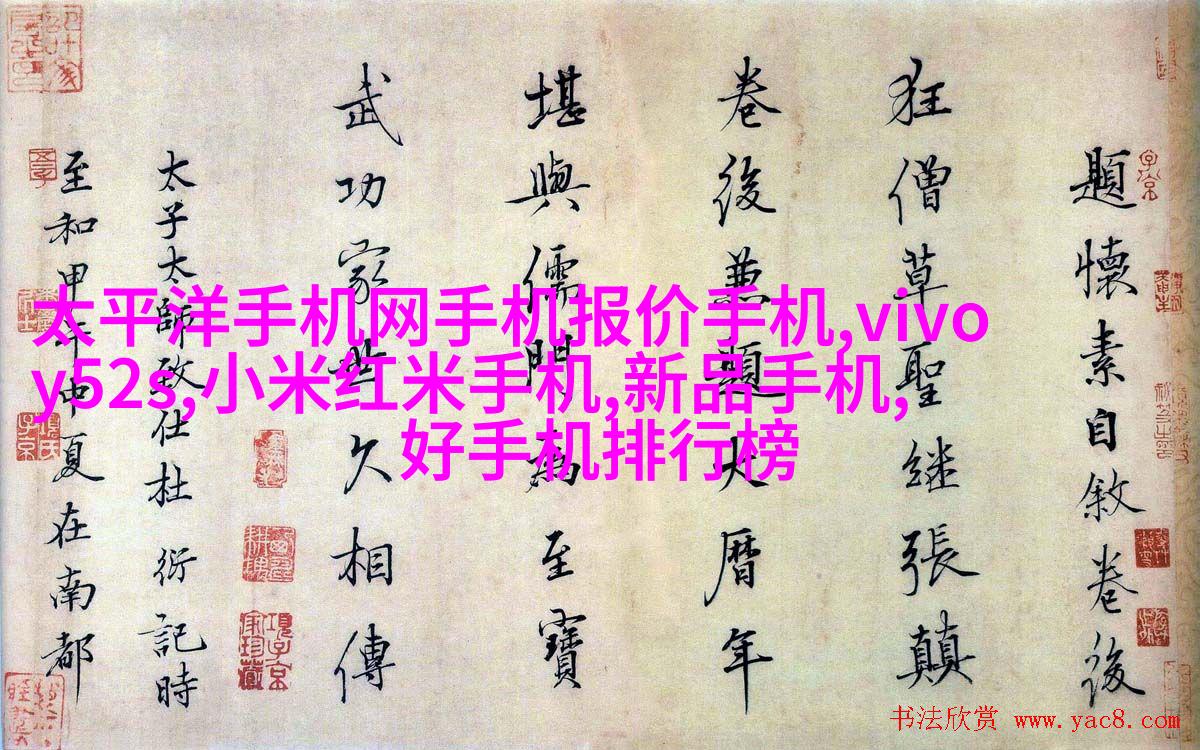 題懷素自敘卷後
狂僧草聖繼張顛
卷後兼題大曆年
堪與儒門為至寶
武功家世久相傳
太子太師致仕杜衍記時
至和甲午中夏在南都
太平洋手机网手机报价手机,vivo
y52s,小米红米手机,新品手机,
好手机排行榜
书法欣赏 www.yac8.com